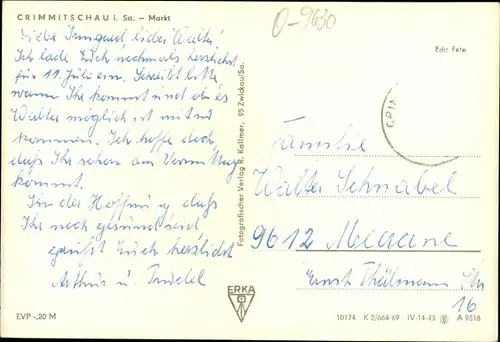 CRIMMITSCHAU i. Sa. – Markt
O-9630
Echt Foto
Liebe Irmgard, lieber Walter!
Ich lade Euch nochmals herzlichst
für 11. Juli ein. Schreibt bitte
wann Ihr kommt und ob es
Walter möglich ist mit zu
kommen. Ich hoffe doch,
daß Ihr schon am Vormittag
kommt.
In der Hoffnung daß
Ihr noch gesund seid,
grüßt Euch herzlichst
Arthur u. Trudel
Fotografischer Verlag R. Kallmer, 95 Zwickau/Sa.
CRIM
Familie
Walter Schnabel
9612 Meerane
Ernst Thälmann Str.
16
ERKA
EVP -,20 M
10174 K 2/664/69 IV-14-45 A 9516